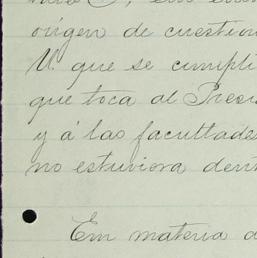 orígen de cuestion
U. que se cumpli
que toca al Presi
y á las facultades
no estuviera dent
Em materia d